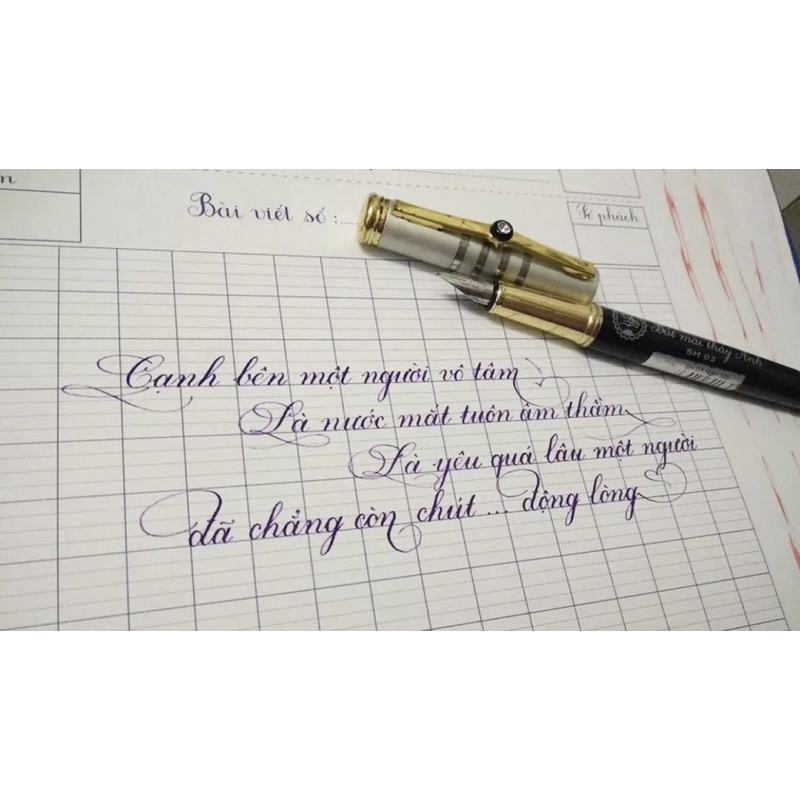 n
Bài viết số :
Số phách
Bút mài thầy Ánh
SH 03
Cạnh bên một người vô tâm
Là nước mắt tuôn âm thầm
Là yêu quá lâu một người
đã chẳng còn chút ... động lòng